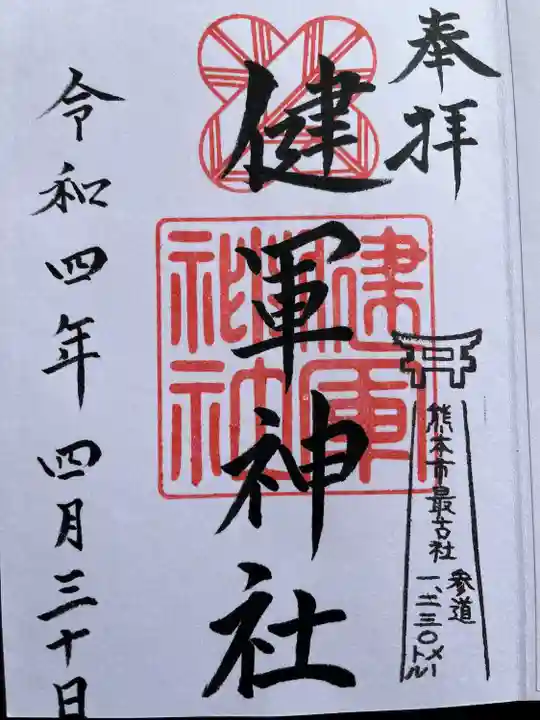 奉拝
健軍神社
熊本市最古社
参道
一、二三〇メートル
令和四年 四月三十日